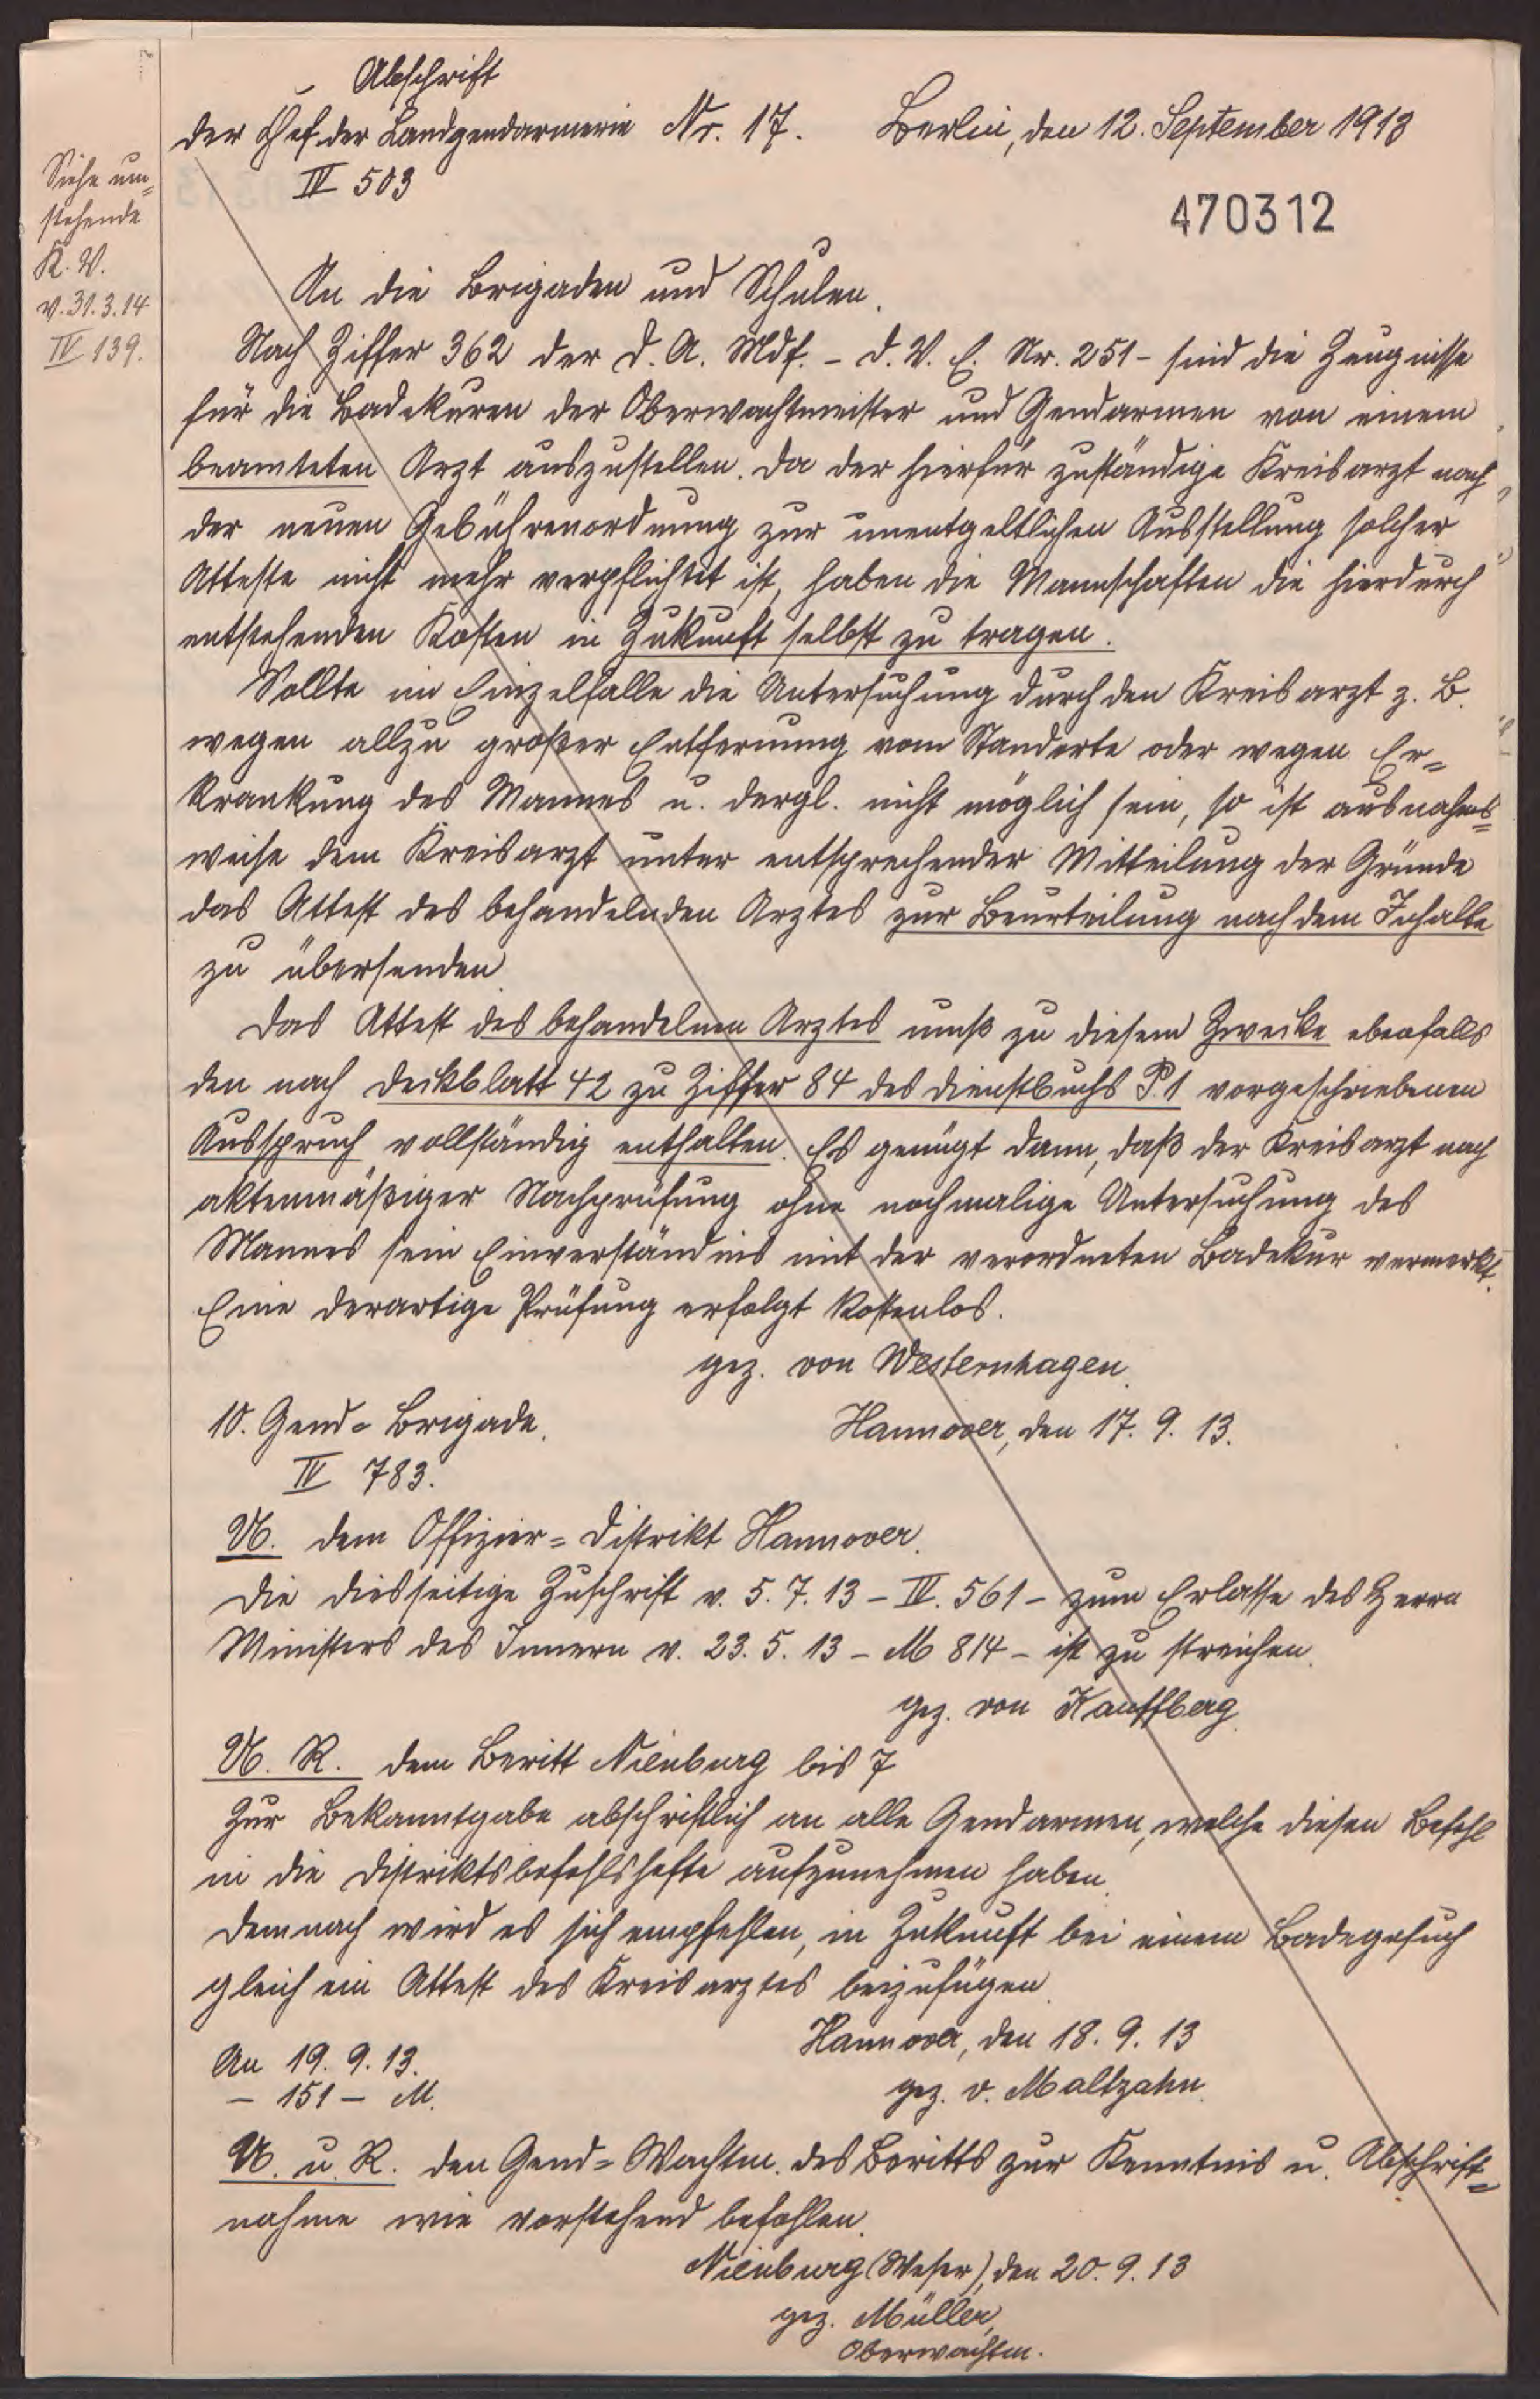 Abschrift
Der Chef der Landgendarmerie Nr. 17. Berlin, den 12. September 1913
IV 503
470312
Siehe um=
stehende
K. V.
v. 31.3.14
IV 139.
An die Brigaden und Schulen.
Nach Ziffer 362 der D. A. Mdf. - D. V. E. Nr. 251 - sind die Zeugnisse
für die Badekuren der Oberwachtmeister und Gendarmen von einem
beamteten Arzt auszustellen. Da der hierfür zuständige Kreisarzt nach
der neuen Gebührenordnung zur unentgeltlichen Ausstellung solcher
Atteste nicht mehr verpflichtet ist, haben die Mannschaften die hierdurch
entstehenden Kosten in Zukunft selbst zu tragen.
Sollte im Einzelfalle die Untersuchung durch den Kreisarzt z. B.
wegen allzu großer Entfernung vom Standorte oder wegen Er=
krankung des Mannes u. dergl. nicht möglich sein, so ist ausnahms=
weise dem Kreisarzt unter entsprechender Mitteilung der Gründe
das Attest des behandelnden Arztes zur Beurteilung nach dem Inhalte
zu übersenden.
Das Attest des behandelnen Arztes muß zu diesem Zwecke ebenfalls
den nach Deckblatt 42 zu Ziffer 84 des Dienstbuchs P. 1 vorgeschriebenen
Ausspruch vollständig enthalten. Es genügt dann, daß der Kreisarzt nach
aktenmäßiger Nachprüfung ohne nochmalige Untersuchung des
Mannes sein Einverständnis mit der verordneten Badekur vermerkt.
Eine derartige Prüfung erfolgt kostenlos.
gez. von Westernhagen.
10. Gend=Brigade. Hannover, den 17. 9. 13.
IV 783.
U. dem Offizier=Distrikt Hannover.
Die diesseitige Zuschrift v. 5. 7. 13 - IV. 561 - zum Erlasse des Herrn
Ministers des Innern v. 23. 5. 13 - M 814 - ist zu streichen.
gez. von Kauffberg.
U. R. dem Beritt Nienburg bis 7
Zur Bekanntgabe abschriftlich an alle Gendarmen, welche diesen Befehl
in die Distriktsbefehlshefte aufzunehmen haben.
Demnach wird es sich empfehlen, in Zukunft bei einem Badegesuch
gleich ein Attest des Kreisarztes beizufügen.
Hannover, den 18. 9. 13
An 19. 9. 13. gez. v. Maltzahn.
- 151 - M.
U. u. R. den Gend=Wachtm. des Beritts zur Kenntnis u. Abschrift=
nahme wie vorstehend befohlen.
Nienburg (Weser), den 20. 9. 13
gez. Müller,
Oberwachtm.